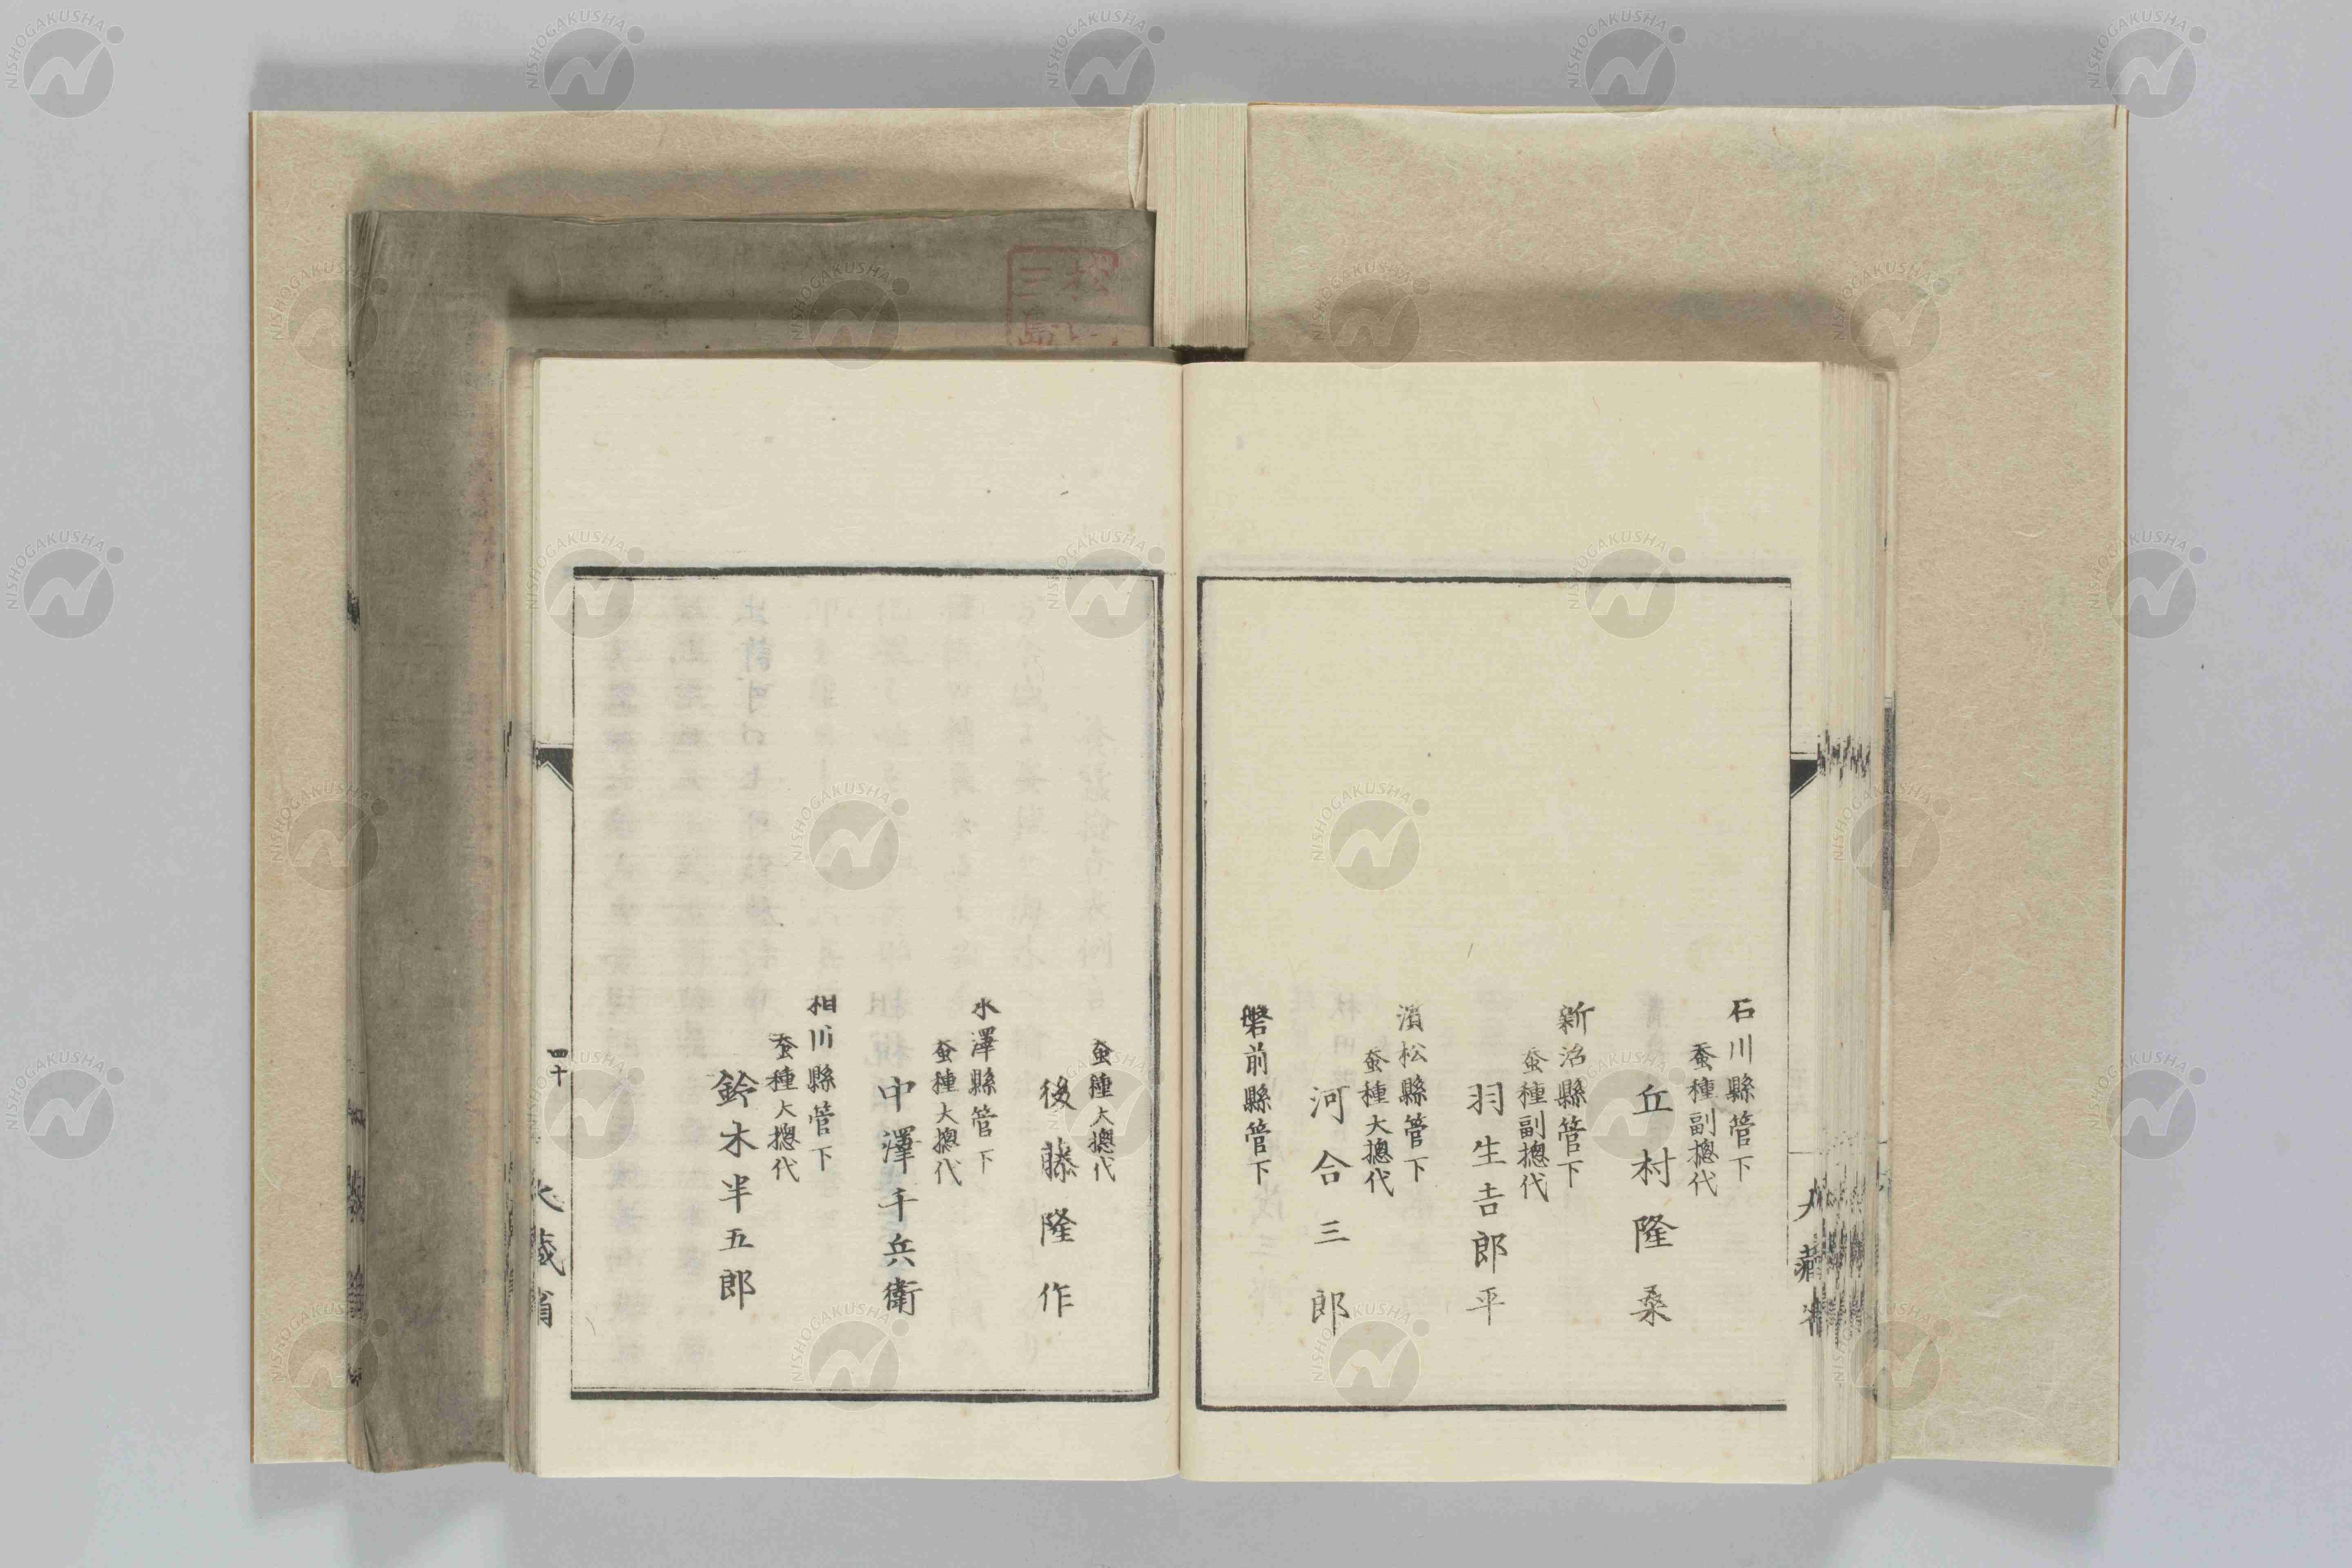 石川縣管下
蚕種副摠代
丘村隆桑
新治縣管下
蚕種副摠代
羽生吉郎平
濱松縣管下
蚕種大摠代
河合三郎
磐前縣管下
蚕種大摠代
後藤隆作
水澤縣管下
蚕種大摠代
中澤千兵衛
相川縣管下
蚕種大摠代
鈴木半五郎
四十
大藏省
NISHOGAKUSHA